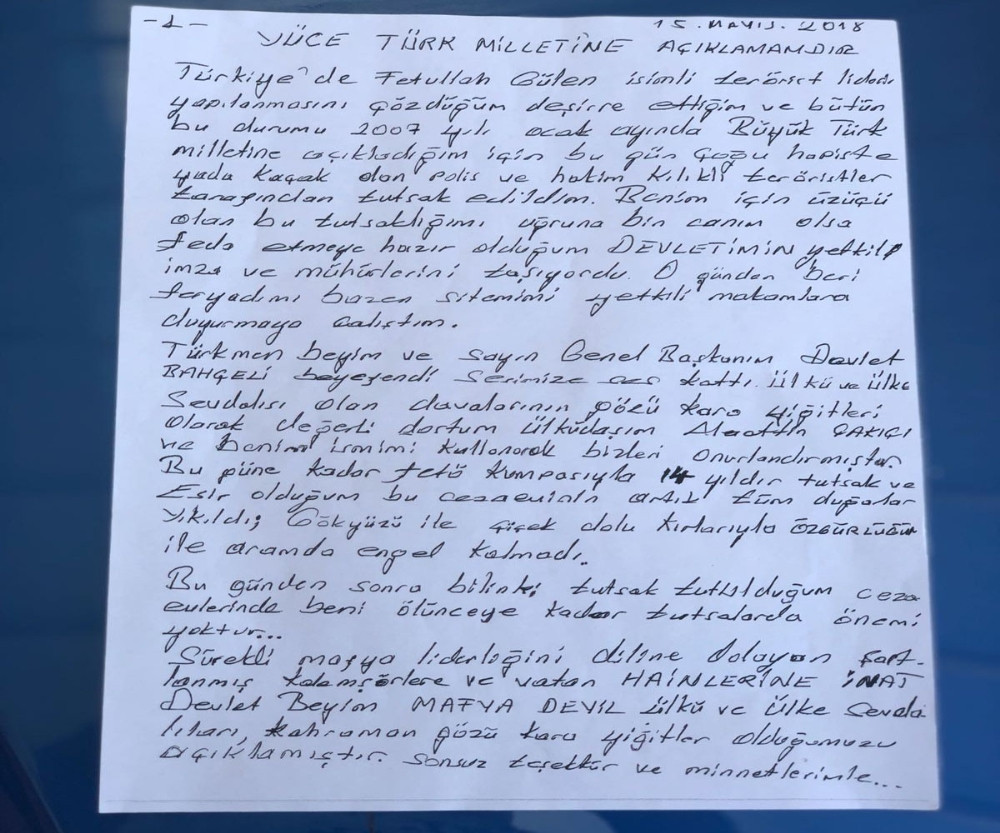 -1-
15.MAYIS.2018
YÜCE TÜRK MİLLETİNE AÇIKLAMAMDIR
Türkiye'de Fetullah Gülen isimli terörist lideri
yapılanmasını çözdüğüm deşifre ettiğim ve bütün
bu durumu 2007 yılı ocak ayında Büyük Türk
milletine açıkladığım için bu gün çoğu hapiste
yada kaçak olan polis ve hakim kılıklı teröristler
tarafından tutsak edildim. Benim için üzücü
olan bu tutsaklığımı uğruna bin canım olsa
feda etmeye hazır olduğum DEVLETİMİN yetkili
imza ve mühürlerini taşıyordu. O günden beri
feryadımı bazen sitemimi yetkili makamlara
duyurmaya çalıştım.
Türkmen beyim ve Sayın Genel Başkanım Devlet
BAHÇELİ beyefendi sesimize ses kattı. Ülkü ve ülke
Sevdalısı olan davalarının gözü kara yiğitleri
olarak değerli dostum ülküdaşım Alaattin ÇAKICI
ve benim ismimi kullanarak bizleri onurlandırmıştır.
Bu güne kadar fetö kumpasıyla 14 yıldır tutsak ve
Esir olduğum bu cezaevinin artık tüm duvarlar
yıkıldı; Gökyüzü ile çiçek dolu kırlarıyla ÖZGÜRLÜĞÜM
ile aramda engel kalmadı.
Bu günden sonra bilinki tutsak tutulduğum ceza
evlerinde beni ölünceye kadar tutsalarda önemi
yoktur...
Sürekli mafya liderliğini diline dolayan şart-
lanmış kalemşörlere ve vatan HAİNLERİNE İNAT
Devlet Beyim MAFYA DEĞİL ülkü ve Ülke Sevda
lıları, kahraman gözü kara yiğitler olduğumuzu
açıklamıştır. Sonsuz teşekkür ve minnetlerimle...